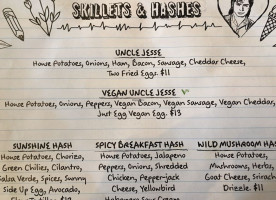 SKILLETS & HASHES
UNCLE JESSE
House Potatoes, Onions, Ham, Bacon, Sausage, Cheddar Cheese,
Two Fried Eggs. $11
VEGAN UNCLE JESSE V
House Potatoes, Onions, Peppers, Vegan Bacon, Vegan Sausage, Vegan Cheddar,
Just Egg Vegan Egg. $13
SUNSHINE HASH
House Potatoes, Chorizo,
Green Chilies, Cilantro,
Salsa Verde, Spices, Sunny
Side Up Egg, Avocado,
SPICY BREAKFAST HASH
House Potatoes, Jalapeno
Peppers, Onions, Shredded
Chicken, Pepper-jack
Cheese, Yellowbird
Habanero Sour Cream
WILD MUSHROOM HASH
House Potatoes,
Mushrooms, Herbs,
Goat Cheese, Sriracha
Drizzle. $11